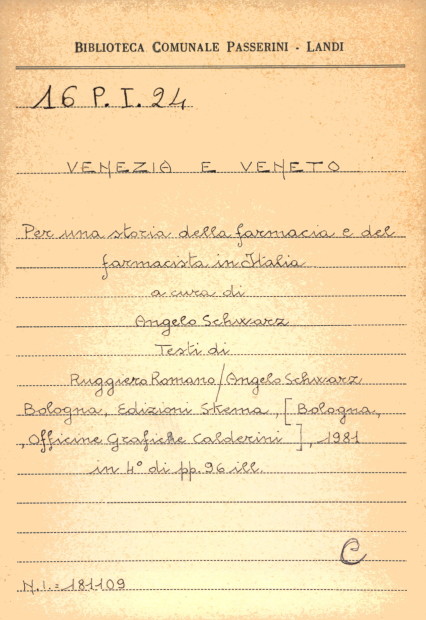 BIBLIOTECA COMUNALE PASSERINI - LANDI
16 P. I. 24
VENEZIA E VENETO
Per una storia della farmacia e del
farmacista in Italia
a cura di
Angelo Schwarz
Testi di
Ruggiero Romano / Angelo Schwarz
Bologna, Edizioni Skema, [Bologna,
Officine Grafiche Calderini], 1981
in 4° di pp. 96 ill.
C
N.I. = 181109